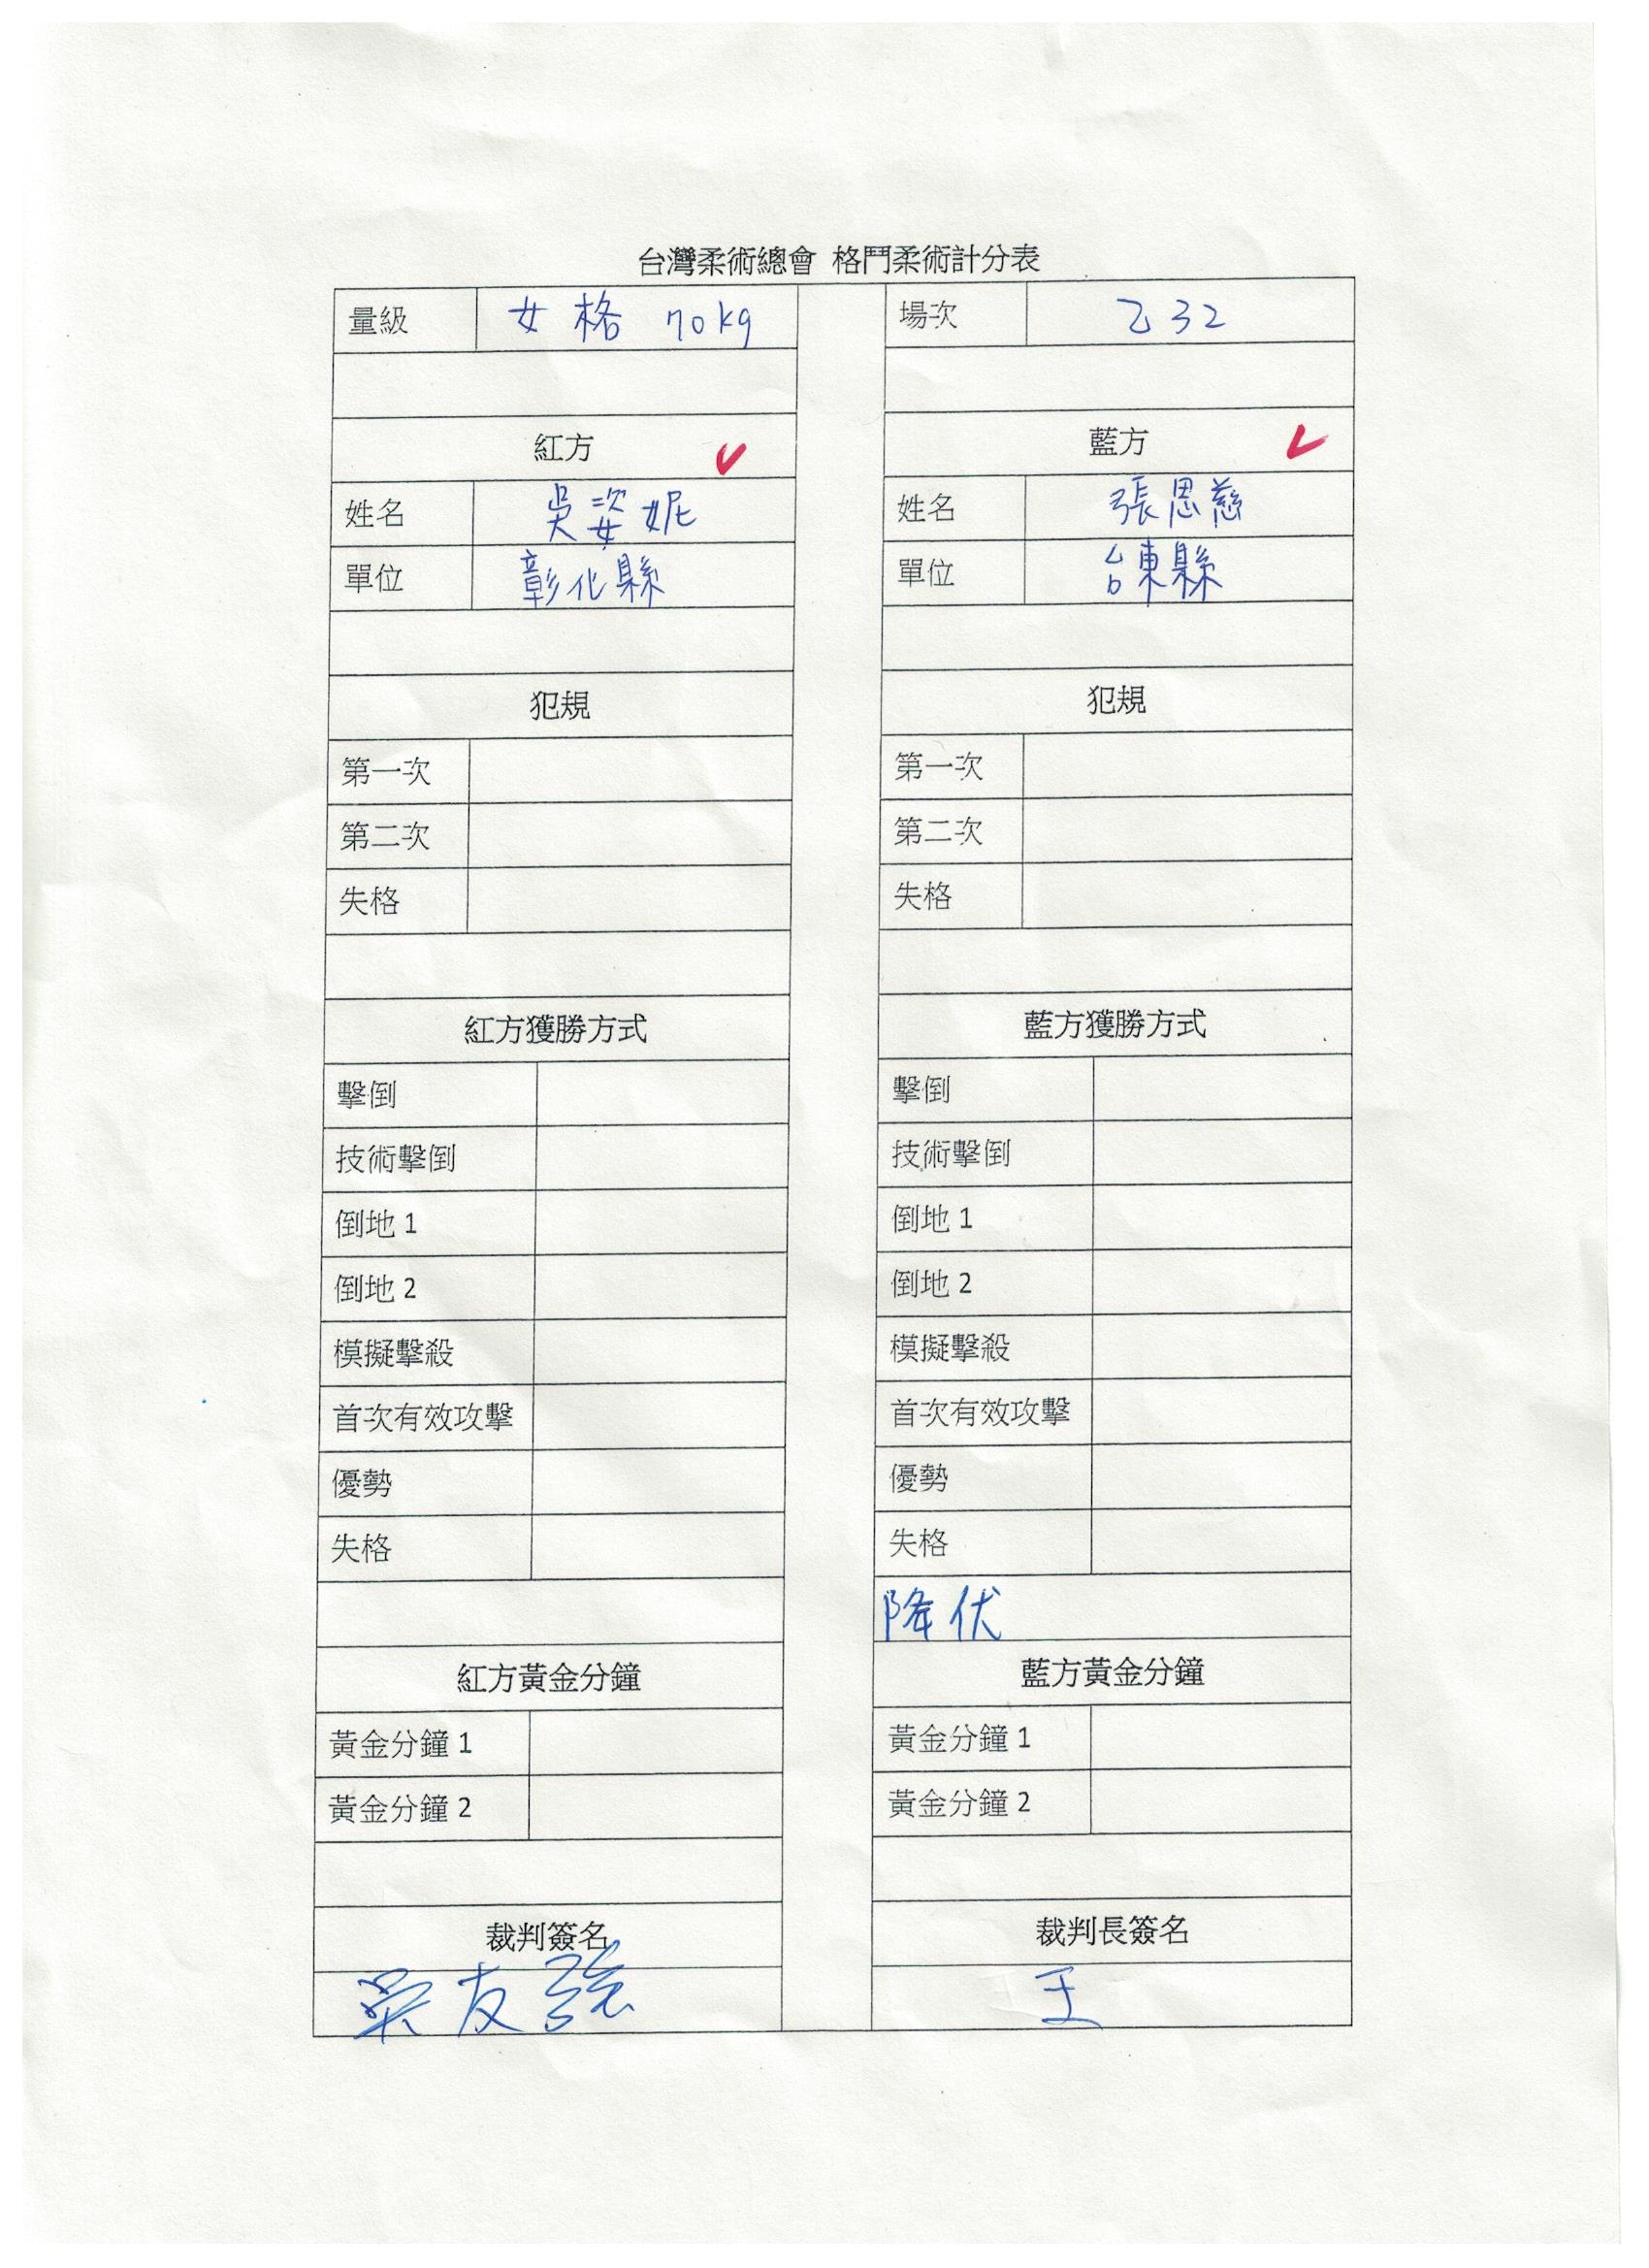 台灣柔術總會 格鬥柔術計分表
量級 女格 70kg 場次 乙32
紅方 ✓ 藍方 ✓
姓名 吳姿妮 姓名 張思慈
單位 彰化縣 單位 台東縣
犯規 犯規
第一次 第一次
第二次 第二次
失格 失格
紅方獲勝方式 藍方獲勝方式
擊倒 擊倒
技術擊倒 技術擊倒
倒地 1 倒地 1
倒地 2 倒地 2
模擬擊殺 模擬擊殺
首次有效攻擊 首次有效攻擊
優勢 優勢
失格 失格
降伏
紅方黃金分鐘 藍方黃金分鐘
黃金分鐘 1 黃金分鐘 1
黃金分鐘 2 黃金分鐘 2
裁判簽名 裁判長簽名
友強 王